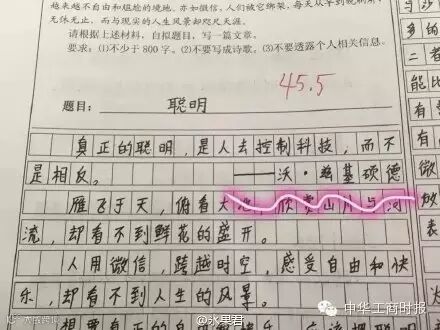 越来越不自由和尴尬的境地。亦如微信，人们被它绑架，每天从早到晚刷屏，
无休无止，而与现实的人生风景却咫尺天涯。
请根据上述材料，自拟题目，写一篇文章。
要求：(1)不少于800字。(2)不要写成诗歌。(3)不要透露个人相关信息。
45.5
题目：聪明
真正的聪明，是人去控制科技，而不
是相反。
——沃·兹基硕德
雁飞于天，俯看大地，欣赏山川与河
流，却看不到鲜花的盛开。
人用微信，跨越时空，感受自由和快
乐，却看不到人生的风景。
想要真正的
与沙
多的
二者
能比
有
微
够
表
@水皇君
中华工商时报